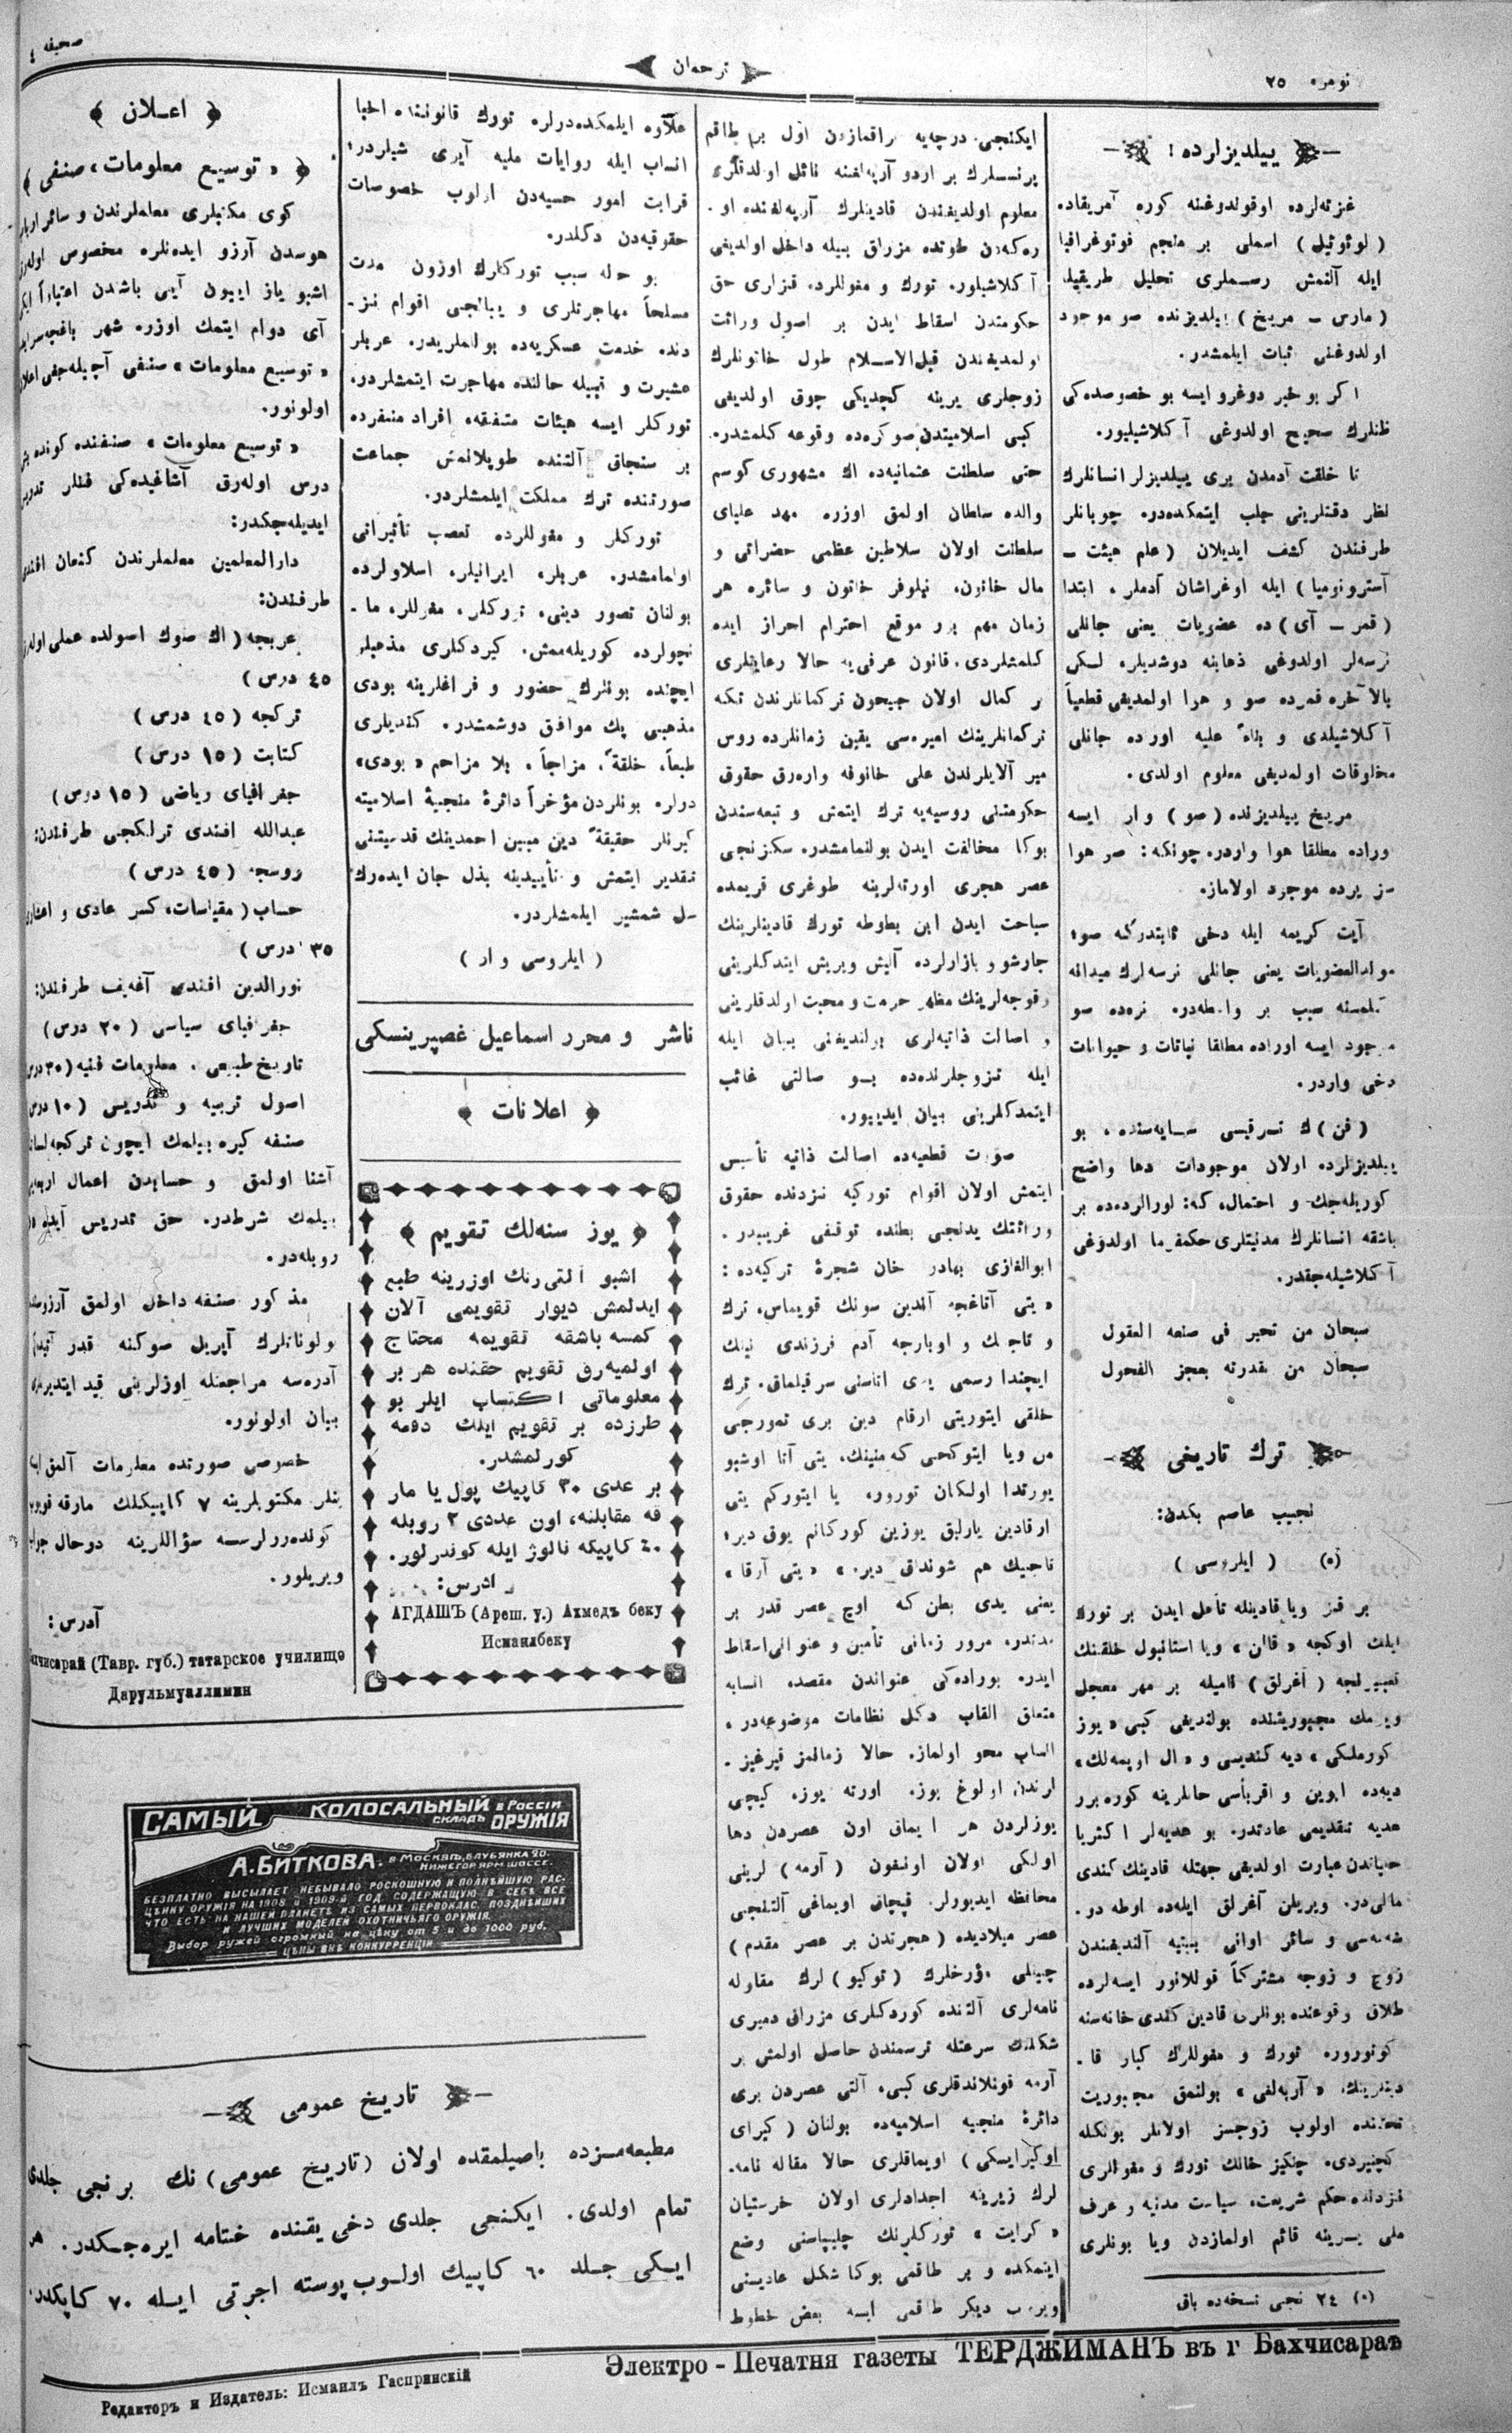 نومره ٢٥
ترجمان
صحيفه ٤
ييلديزلرده:
غزته‌لرده اوقولدوغنه كوره آمريقاده
(لوئوئيل) اسملى بر منجم فوتوغرافيا
ايله آلنمش رسملرى تحليل طريقيله
(مارس ــ مريخ) ييلديزنده صو موجود
اولدوغنى اثبات ايلمشدر.
اكر بو خبر دوغرو ايسه بو خصوصده‌كى
ظنلرك صحيح اولدوغى آكلاشيليور.
تا خلقت آدمدن برى ييلديزلر انسانلرك
نظر دقتلرينى جلب ايتمكده‌در. چوبانلر
طرفندن كشف ايديلان (علم هيئت ــ
آسترونوميا) ايله اوغراشان آدملر، ابتدا
(قمر ــ آى) ده عضويات يعنى جانلى
نرسه‌لر اولدوغى ذهابنه دوشديلر. لسكن
بالآخره قمرده صو و هوا اولمديغى قطعياً
آكلاشيلدى و بناءً عليه اورده جانلى
مخلوقات اولمديغى معلوم اولدى.
مريخ ييلديزنده (صو) وار ايسه
وراده مطلقا هوا واردر. چونكه: صو هوا
سز يرده موجود اولاماز.
آيت كريمه ايله دخى ثابتدركه صو،
مولدالعضويات يعنى جانلى نرسه‌لرك ميدانه
كلمسنه سبب بر واسطه‌در. نره‌ده صو
موجود ايسه اوراده مطلقا نباتات و حيوانات
دخى واردر.
(فن) ك ترقيسى سايه‌سنده، بو
ييلديزلرده اولان موجودات دها واضح
كوريله‌جك و احتمال، كه: اورالرده‌ده بر
باشقه انسانلرك مدنيتلرى حكمفرما اولدوغى
آكلاشيله‌جقدر.
سبحان من تحير فى صنعه العقول
سبحان من بقدرته يعجز الفحول
ترك تاريغى
نجيب عاصم بكدن:
(٥) (ايلروسى)
بر قز ويا قادينله تأهل ايدن بر تورك
ايلك اوكجه «قاان» ويا استانبول خلقنك
تعبيرنجه (آغرلق) ناميله بر مهر معجل
ويرمك مجبوريتنده بولنديغى كبى «يوز
كورملكى» ديه كنديسى و «ال اوپمه‌لك»
ديه‌ده ابوين و اقرباسى حاللرينه كوره برر
هديه تقديمى عادتدر. بو هديه‌لر اكثريا
حياندن عبارت اولديغى جهتله قادينك كندى
مالى‌در. ويريلن آغرلق ايله‌ده اوطه دو.
شه‌مسى و سائر اوانى بيتيه آلنديغندن
زوج و زوجه مشتركاً قوللانور ايسه‌لرده
طلاق وقوعنده بونلرى قادين كندى خانه‌سنه
كوتورور. تورك و مغوللرك كبار قا.
دينلرينك «آرپه‌لغى» بولنمق مجبوريت
تحتنده اولوب زوجسز اولانلر بونكله
كچنيردى. چنكيز خانك تورك و مغوللرى
نزدنده حكم شريعت، سياست مدنيه و عرف
ملى يرينه قائم اولمازدن ويا بونلرى
(٥) ٢٤ نجى نسخه‌ده باق
ايكنجى درجه‌يه براقمازدن اول بر طاقم
پرنسلرك بر اردو آرپه‌لغنه نائل اولدقلرى
معلوم اولديغندن قادينلرك آرپه‌لغنده او.
ره‌كه‌دن طوتده مزراق بيله داخل اولديغى
آكلاشيلور. تورك و مغوللرده قزلرى حق
حكومتدن اسقاط ايدن بر اصول وراثت
اولمديغندن قبل‌الاسلام طول خاتونلرك
زوجلرى يرينه كچديكى چوق اولديغى
كبى اسلاميتدن صوكره‌ده وقوعه كلمشدر.
حتى سلطنت عثمانيه‌ده اك مشهورى كوسم
والده سلطان اولمق اوزره مهد علياى
سلطنت اولان سلاطين عظمى حضراتى و
مال خاتون، نيلوفر خاتون و سائره هر
زمان مهم برر موقع احترام احراز ايده
كلمشلردى. قانون عرفى‌يه حالا رعايتلرى
بر كمال اولان جيحون تركمانلرندن تكه
تركمانلرينك اميره‌سى يقين زمانلرده روس
مير آلايلرندن على خانوفه واره‌رق حقوق
حكومتنى روسيه‌يه ترك ايتمش و تبعه‌سندن
بوكا مخالفت ايدن بولنمامشدر. سكزنجى
عصر هجرى اورته‌لرينه طوغرى قريمده
سياحت ايدن ابن بطوطه تورك قادينلرينك
چارشو و بازارلرده آليش ويريش ايتدكلرينى
وقوجه‌لرينك مظهر حرمت و محبت اولدقلرينى
و اصالت ذاتيه‌لرى بولنديغنى بيان ايله
ايله تزوجلرنده‌ده بو صالتى غائب
ايتمدكلرينى بيان ايدييور.
صورت قطعيه‌ده اصالت ذاتيه تأسيس
ايتمش اولان اقوام توركيه نزدنده حقوق
وراثتك يدنجى بطنده توقفى غريبدر.
ابوالغازى بهادر خان شجرۀ تركيه‌ده:
«يتى آتاغچه آلدين سونك قويماس، ترك
خلقى ايتورينى ارقام دين برى تمورجى
يعنى يدى بطن كه اوچ عصر قدر بر
مدتدر. مرور زمانى تأمين و عنوانى اسقاط
ايدر. بوراده‌كى عنواندن مقصد، انسابه
متعلق القاب دكل نظامات موضوعه‌در.
انساب محو اولماز. حالا زمانمز قيرغيز.
لرندن اولوغ يوز، اورته يوز، كيچى
يوزلردن هر ايماق اون عصردن دها
اولكى اولان اونيغون (آرمه) لرينى
محافظه ايديورلر. قپچاق اويماغى آلتنجى
عصر ميلاديده (هجرتدن بر عصر مقدم)
چينلى مؤرخلرك (توكيو) لرك مقاوله
نامه‌لرى آلتنده كوردكلرى مزراق دميرى
شكلنك سرعتله ترسمندن حاصل اولمش بر
آرمه قوللاندقلرى كبى، آلتى عصردن برى
دائرۀ منجيه اسلاميه‌ده بولنان (كيراى
اويرايسكى) اويماقلرى حالا مقاله نامه.
لرك زيرينه اجدادلرى اولان خرستيان
«كرايت» توركلرينك چليپاسنى وضع
ايتمكده و بر طاقمى بوكا شكل عاديسنى
ويروب ديكر طاقمى ايسه بعض خطوط
علاوه ايلمكده‌درلر. تورك قانوننده احيا
انساب ايله روايات مليه آيرى شيلردر؛
قرابت امور حسيه‌دن اولوب خصوصات
حقوقيه‌دن دكلدر.
بو حاله سبب توركلرك اوزون مدت
مسلحاً مهاجرتلرى و يبانجى اقوام نز.
دنده خدمت عسكريه‌ده بولنملريدر. عربلر
عشيرت و قبيله حالنده مهاجرت ايتمشلردر.
توركلر ايسه هيئات متفقه، افراد منفرده
بر سنجاق آلتنده طوپلانمش جماعت
صورتنده ترك مملكت ايلمشلردر.
توركلر و مغوللرده تعصب تأثيراتى
اولمامشدر. عربلر، ايرانيلر، اسلاولرده
بولنان تصور دينى، توركلر، مغوللر، ما.
نچولرده كوريله‌ممش. كيردكلرى مذهبلر
ايچنده بونلرك حضور و فراغلرينه بودى
مذهبى پك موافق دوشمشدر. كنديلرى
طبعاً، خلقةً، مزاجاً، بلا مزاحم «بودى»
درلر. بونلردن مؤخراً دائرۀ منجيۀ اسلاميته
كيرنلر حقيقةً دين مبين احمدينك قدسيتنى
تقدير ايتمش و تأييدينه بذل جان ايده‌رك
سل شمشير ايلمشلردر.
(ايلروسى وار)
ناشر و محرر اسماعيل غصپرينسكى
اعلانات
يوز سنه‌لك تقويم
اشبو آلتى رنك اوزرينه طبع
ايدلمش ديوار تقويمى آلان
كمسه باشقه تقويمه محتاج
اولميه‌رق تقويم حقنده هر بر
معلوماتى اكتساب ايلر بو
طرزده بر تقويم ايلك دفعه
كورلمشدر.
بر عدى ٣٠ كاپيك پول يا مار
قه مقابلنه، اون عددى ٢ روبله
٤٠ كاپيكه نالوژ ايله كوندرلور.
ادرس:
АГДАШЪ (Ареш. у.) Ахмедъ беку
Исмаилбеку
اعلان
«توسيع معلومات» صنفى
كوى مكتبلرى معلملرندن و سائر ارباب
هوسدن آرزو ايدنلره مخصوص اوله‌رق
اشبو ياز اييون آيى باشدن اعتباراً ايكى
آى دوام ايتمك اوزره شهر باغچه‌سرايده
«توسيع معلومات» صنفى آچيله‌جغى اعلان
اولونور.
«توسيع معلومات» صنفنده كونده بش
درس اوله‌رق آشاغيده‌كى فنلر تدريس
ايديله‌جكدر:
دارالمعلمين معلملرندن كنعان افندى
طرفندن:
عربجه (اك صوك اسولده عملى اوله‌رق
٤٥ درس)
تركجه (٤٥ درس)
كتابت (١٥ درس)
جغرافياى رياضى (١٥ درس)
عبدالله افندى ترلكجى طرفندن:
روسجه (٤٥ درس)
حساب (مقياسات، كسر عادى و اعشارى
٣٥ درس)
نورالدين افندى آغه‌يف طرفندن:
جغرافياى سياسى (٢٠ درس)
تاريخ طبيعى، معلومات فنيه (٣٠ درس)
اصول تربيه و تدريس (١٠ درس)
صنفه كيره بيلمك ايچون تركجه لسانه
آشنا اولمق و حسابدن اعمال اربعه‌يى
بيلمك شرطدر. حق تدريس آيده
روبله‌در.
مذكور صنفه داخل اولمق آرزوسنده
ولونانلرك آپريل صوكنه قدر آتيده‌كى
آدره‌سه مراجعتله اوزلرينى قيد ايتديرملرى
بيان اولونور.
خصوصى صورتده معلومات آلمق ايسته
ينلر مكتوبلرينه ٧ كاپيكلك مارقه قويوب
كوندررلرسه سؤاللرينه درحال جواب
ويريلور.
آدرس:
Бахчисарай (Тавр. губ.) татарское училище
Дарульмуаллимин
САМЫЙ КОЛОСАЛЬНЫЙ в России
складъ ОРУЖІЯ
А. БИТКОВА. в Москвѣ, Б. Лубянка 20.
Нижегор. ярм. шоссе.
БЕЗПЛАТНО ВЫСЫЛАЕТ НЕБЫВАЛО РОСКОШНУЮ И ПОЛНѢЙШУЮ РАС-
ЦѢНКУ ОРУЖІЯ НА 1908 и 1909-й ГОД СОДЕРЖАЩУЮ В СЕБѢ ВСЕ
ЧТО ЕСТЬ НА НАШЕЙ ПЛАНЕТѢ ИЗ САМЫХ ПЕРВОКЛАС. ПОЗДНѢЙШИХ
И ЛУЧШИХ МОДЕЛЕЙ ОХОТНИЧЬЯГО ОРУЖІЯ.
Выбор ружей огромный на цѣну от 5 и до 1000 руб.
ЦѢНЫ ВНѢ КОНКУРРЕНЦІИ
تاريخ عمومى
مطبعه‌مزده باصيلمقده اولان (تاريخ عمومى) نك برنجى جلدى
تمام اولدى. ايكنجى جلدى دخى يقنده ختامه ايره‌جكدر. هر
ايكى جلد ٦٠ كاپيك اولوب پوسته اجرتى ايله ٧٠ كاپكدر.
Электро - Печатня газеты ТЕРДЖИМАНЪ въ г Бахчисараѣ
Редакторъ и Издатель: Исмаилъ Гаспринскій